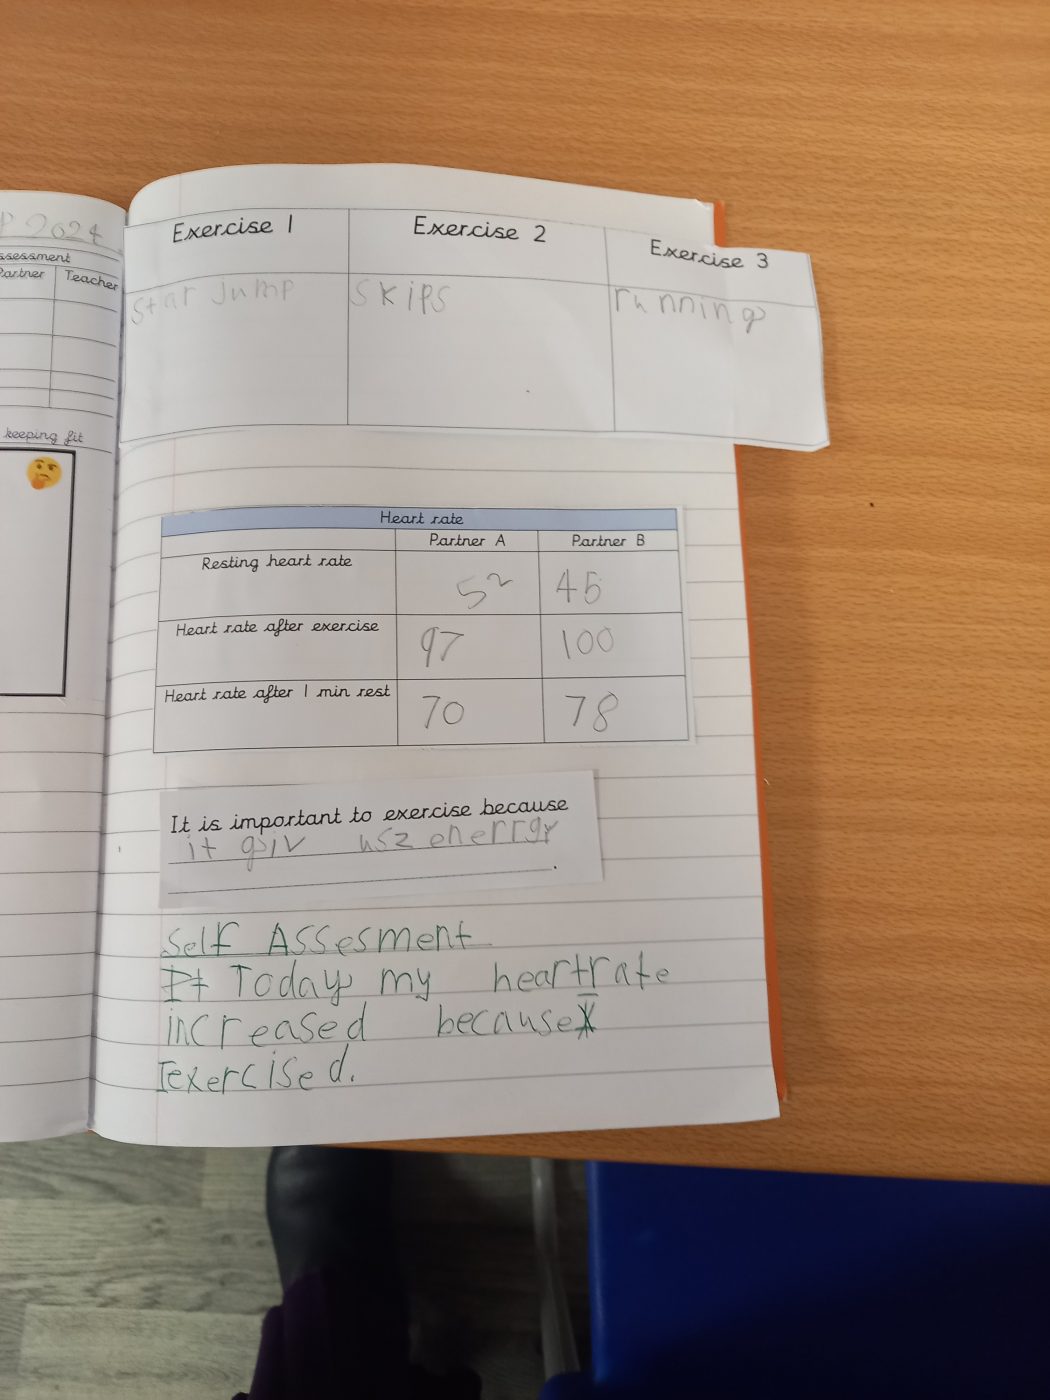 2024
ssessment
Partner Teacher
keeping fit
Exercise 1 Exercise 2 Exercise 3
star Jump skips running
Heart rate
Partner A Partner B
Resting heart rate 52 45
Heart rate after exercise 97 100
Heart rate after 1 min rest 70 78
It is important to exercise because
it giv usz enerrgy
.
Self Assesment
It Today my heartrate
increased because
I exercised.